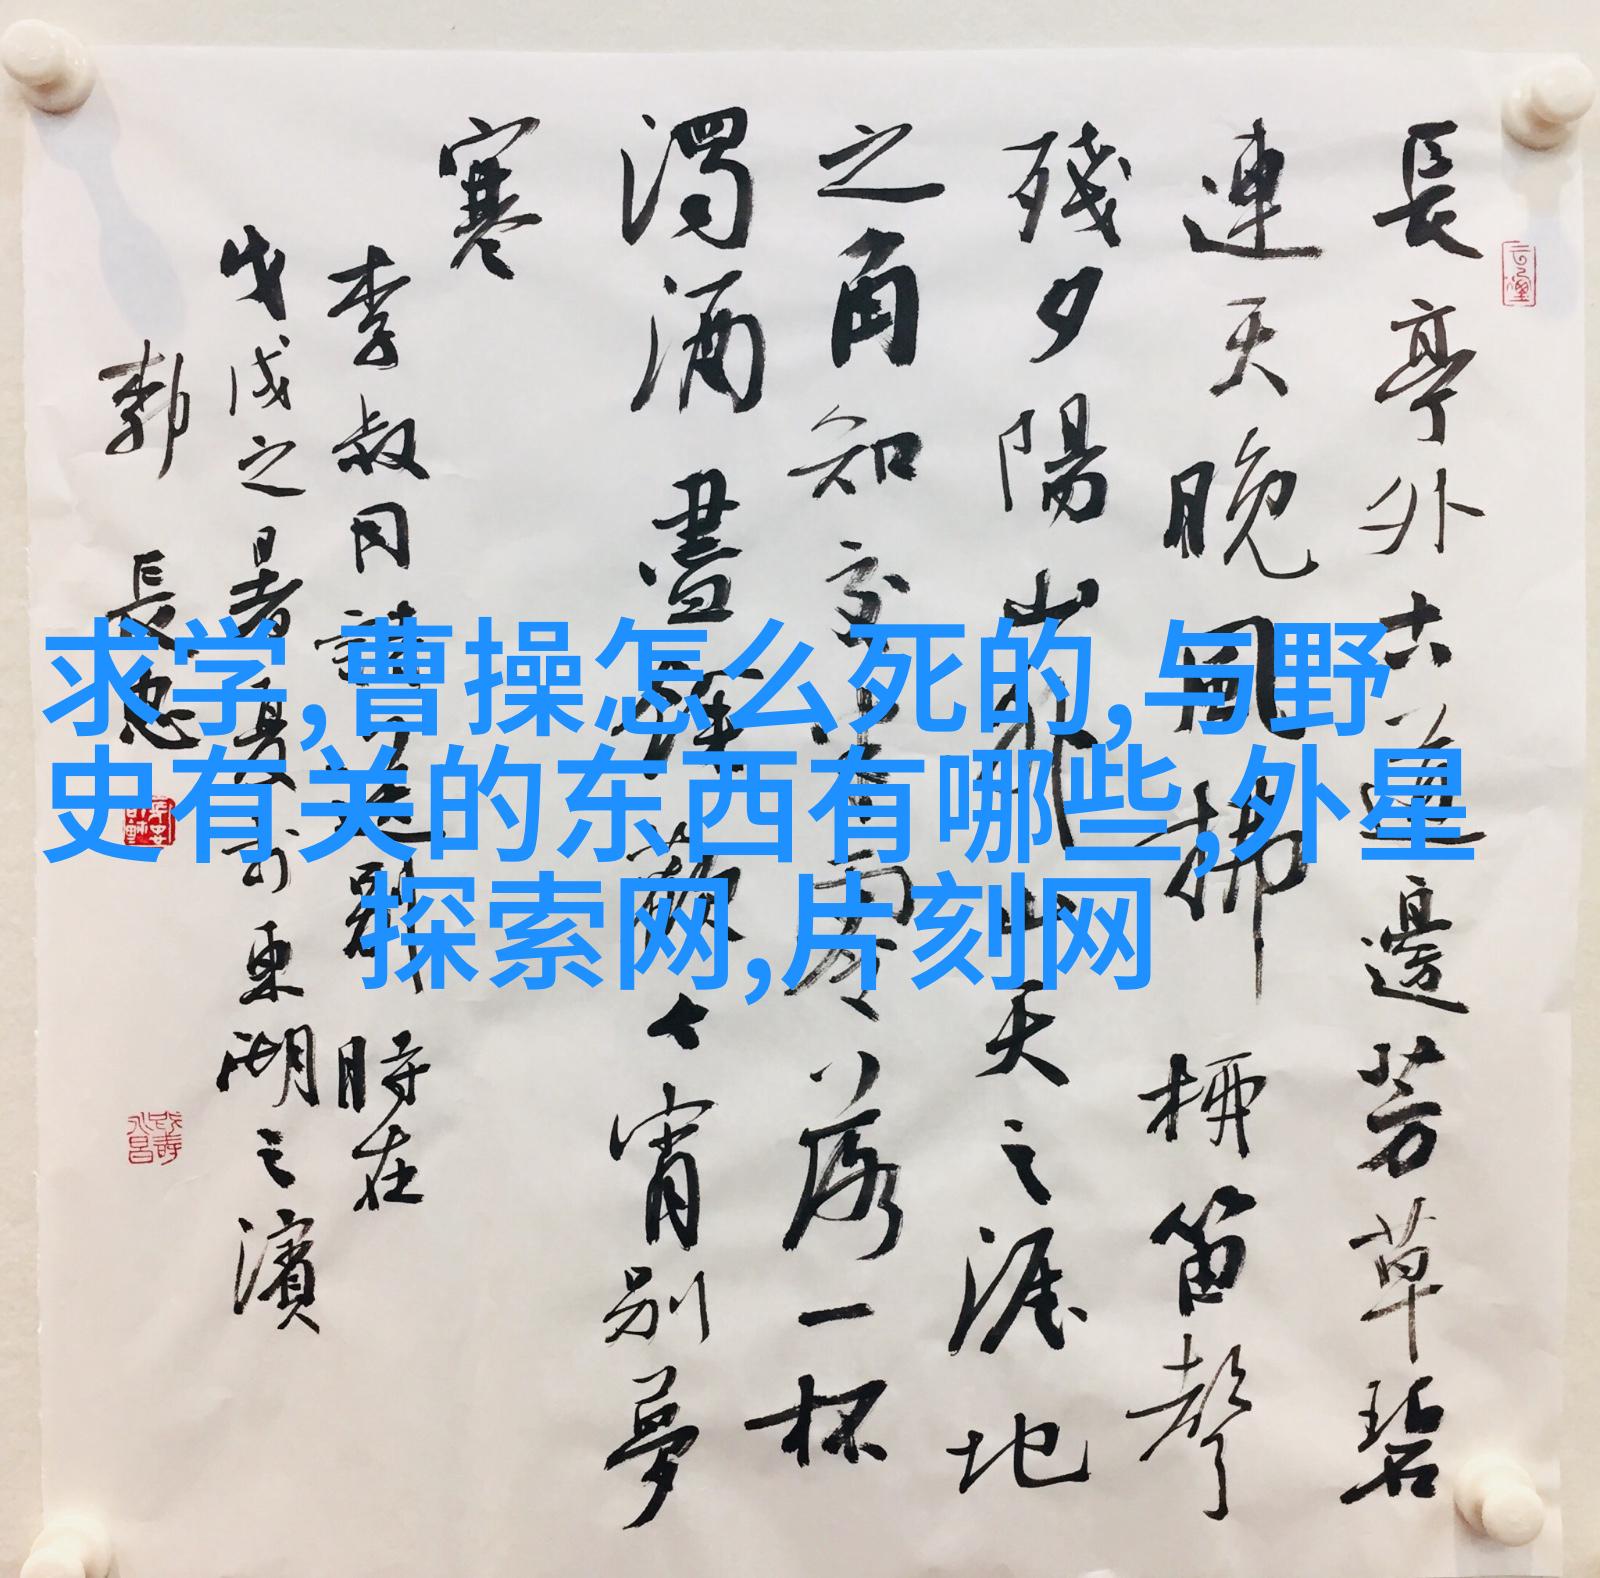 求学,曹操怎么死的,与野
史有关的东西有哪些,外星
探索网,片刻网
長亭外古道邊芳草碧
連天晚風拂柳笛聲
殘夕陽山外山天之涯地
之角知交半零落一杯
濁酒盡餘歡今宵別夢
寒
李叔同詩送別 時在
戊戌之暑月於東湖之濱
郭長